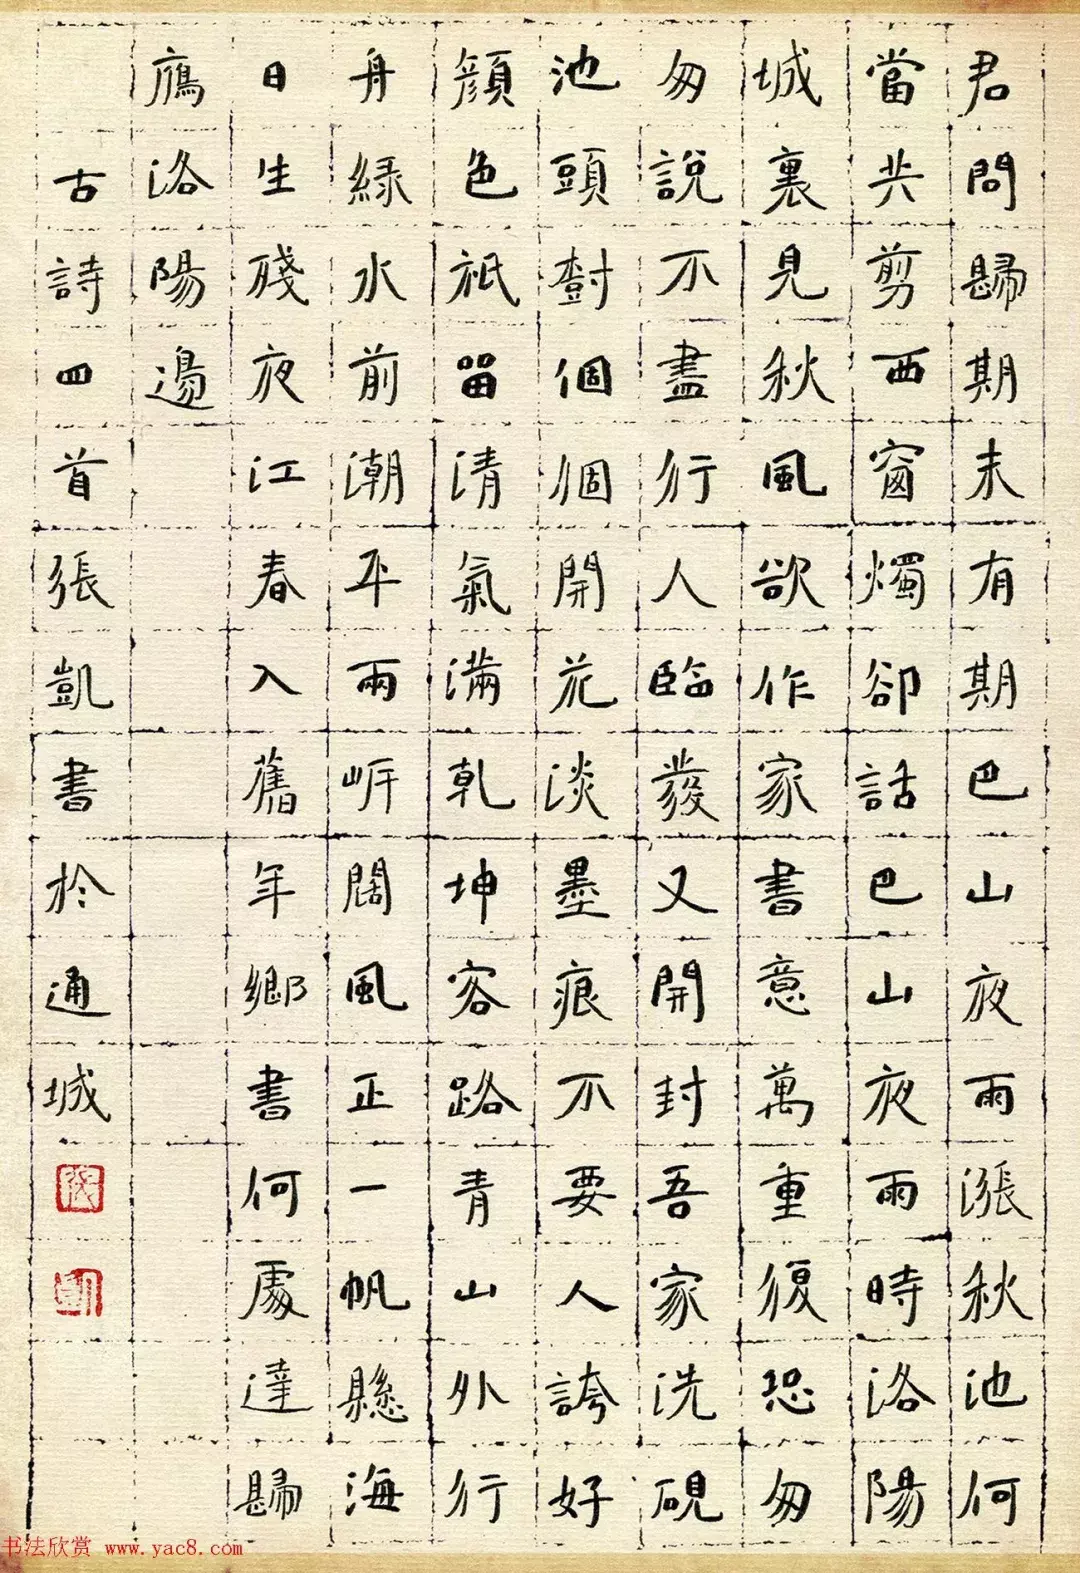 君問歸期未有期巴山夜雨漲秋池何
當共剪西窗燭卻話巴山夜雨時洛陽
城裏見秋風欲作家書意萬重復恐匆
匆說不盡行人臨發又開封吾家洗硯
池頭樹個個開花淡墨痕不要人誇好
顏色祇留清氣滿乾坤客路青山外行
舟綠水前潮平兩岸闊風正一帆懸海
日生殘夜江春入舊年鄉書何處達歸
鴈洛陽邊
古詩四首張凱書於通城
书法欣赏 www.yac8.com